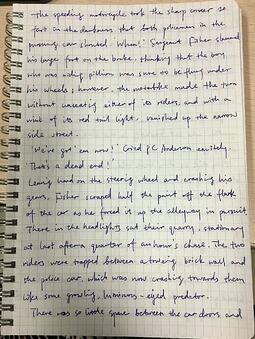 The speeding motorcycle took the sharp corner so
fast in the darkness that both policeman in the
pursuing car shouted 'Whoa!' Sergeant Fisher slammed
his large foot on the brake, thinking that the boy
who was riding pillion was sure to be flung under
his wheels; however, the motorbike made the turn
without unseating either of its riders, and with a
wink of its red tail light, vanished up the narrow
side street.
'We've got 'em now!' Cried PC Anderson excitedly.
'That's a dead end!'
Leaning hard on the steering wheel and crashing his
gears, Fisher scraped half the paint off the flank
of the car as he forced it up the alleyway in pursuit.
There in the headlights sat their quarry, stationary
at last after a quarter of an hour's chase. The two
riders were trapped between a towering brick wall and
the police car, which was now crashing towards them
like some growling, luminous-eyed predator.
There was so little space between the car doors and